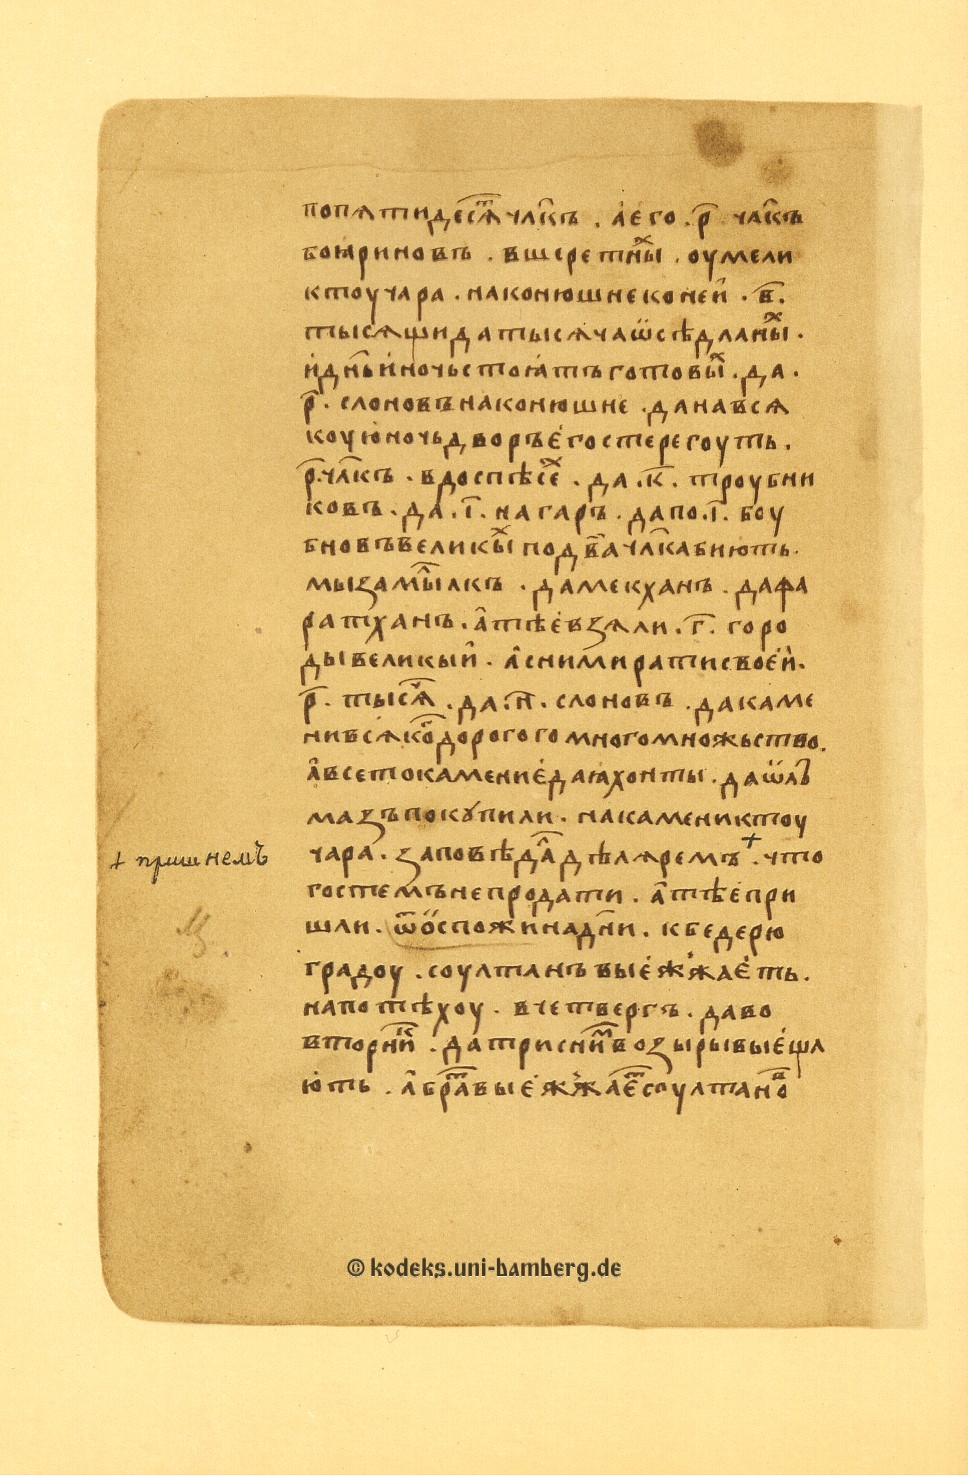 попѧтидесѧⷮ члк҃ъ . а҆его . р҃ . чл҃къ
боꙗриновъ . вшеретныⷯ . оумели
ктоучара . наконюшнеконеи҆ . в҃ .
тысѧщидатысѧчаѡ҆сѣдланыⷯ .
и҆дн҃ьи҆ночьстоꙗ҆тъготовыⷯ . да .
р҃ . слоновънаконюшне . данавсѧ
коуюночьдворъе҆гостерегоуть .
р҃ . члк҃ъ . вдоспѣсеⷯ . да . к҃ . троубни
ковъ . да . і҃ . нагаръ . дапо . і҃ . боу
бновъвеликыⷯ подва҃ члк҃абиють .
мызамыⷧлкъ . дамекханъ . дафа
ратханъ . а҆тѣе҆взѧли . г҃ . горо
дывеликыи҆ . а҆снимиратисвоеи҆ .
р҃ . тысѧⷱ . да . н҃ . слоновъ . дакаме
нивсѧкоⷢдорогогомногомножьство .
а҆всетокамениедаꙗхонты . даѡ҆л
мазъпокꙋпили . накамениктоу
чара . заповѣдаⷧдѣлѧремъ + . что
гостемънепродати . а҆тѣепри
шли . ѿ ѡ҆спожинадн҃и . кбедерю
градоу . соултанъвыѣ҆жжаеть .
напотѣхоу . вчетвергъ . даво
вторниⷦ . датриснимⷨвозырывыещѧ
ють . а҆браⷮвыежжаеⷮсоултаноⷡ
+ пришнемъ
© kodeks.uni-bamberg.de